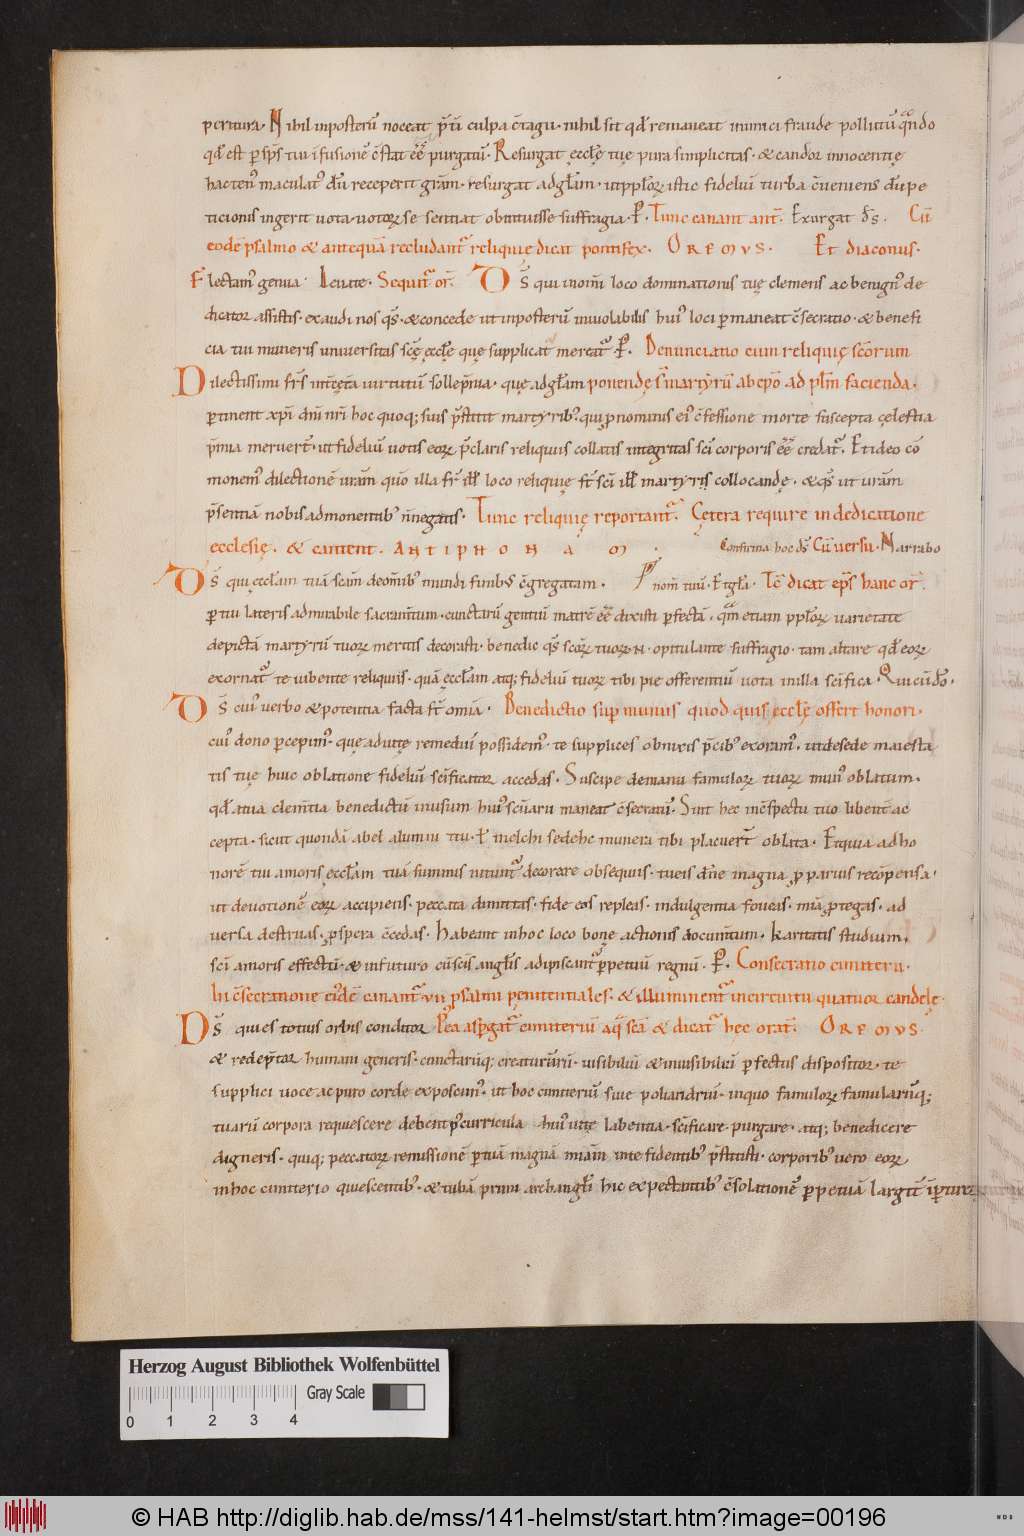 peritura. Nihil inposterū noceat p̄t̄i culpa c̄tagii. nihil sit qđ remaneat inimici fraude pollitū qn̄do
qđ est p sp̄s tui īfusionē c̄stat eē purgatū. Resurgat ęccłę tuę pura simplicitas. & candor innocentię
hacten' maculat' dū receperit grām. resurgat adgłam. utpplo℞ istic fideliū turba c̄ueniens dū pe
ticionis ingerit uota. uoto℞ se sentiat obtinuisse suffragia. P̄. Tunc canant ant̄. Exurgat d̄s. Cū
eodē psalmo & antequā recludant' reliquię dicat pontifex. OREMVS. Et diaconus.
Flectam' genua. Leuate. Sequit' or̄. Ds̄ qui inom̄i loco dominationis tuę clemens ac benign' de
dicator assistis. exaudi nos qs̄. & concede ut inposterū inuiolabilis hui' loci pmaneat c̄secratio. & benefi
cia tui muneris uniuersitas scę ęccłę quę supplicat mereat' P̄. Denunciatio cum reliquię scōrum
Dilectissimi frs̄ int̄ cętā uirtutū sollēpnia. quę adgłam ponendę s̄ martyrū abepō ad płm facienda.
ptinent xp̄i dn̄i nr̄i hoc quoq; suis p̄stitit martyrib'. qui pnominis ei' c̄fessione morte suscepta cęlestia
p̄mia meruer̄t. ut fidelium uotis eo℞ p̄claris reliquiis collatis integritas sci corporis eē credat'. Et ideo cō
monem' dilectionē urām quō illa fr̄ ill̄ loco reliquię fr̄ sci ill̄ martyris collocandę. & qs̄ ut urām
p̄sentiā nobis admonentib' n̄ negatis. Tunc reliquię reportant'. Cętera require in dedicatione
ecclesię. & cantent. ANTIPHONA M. Confirma hoc ds̄ Cū uersu. Narrabo
Ds̄ qui ęccłam tuā scam̄ deom̄ib' mundi finib' c̄gregatam. nom̄ tuū. Et gła. Tc̄ dicat ep̄s hanc or̄.
p tui lateris admirabile sacram̄tum. cunctarū gentiū matrē eē dixisti pfectā. qm̄ etiam pplo℞ uarietate
depictā martyrū tuo℞ meritis decorasti. benedic qs̄ sco℞ tuo℞ N. opitulante suffragio. tam altare qđ eo℞
exornat' te iubente reliquiis. quā ęccłam atq; fidelium tuo℞ tibi pie offerentiū uota in illa sc̄ifica. Qui cū d̄o.
Ds̄ cui' uerbo & potentia facta st̄ om̄ia. Benedictio sup munus quod quis ęccłę offert honori.
cui' dono pcepim'. quę ad uitę remediū possidem'. te supplices obnixis p̄cib' exoram'. ut desede maiesta
tis tuę huic oblatione fidelium sc̄ificator accedas. Suscipe demanu famulo℞ tuo℞ mun' oblatum.
qđ atua clem̄tia benedictū inusum hui' sc̄uarii maneat c̄secratū. Sint hec inc̄spectu tuo libent̄ ac
cepta. sicut quondā abel alumni tui. ł melchisedehc munera tibi placuer̄t oblata. Et quia ad ho
norē tui amoris ęccłam tuā summis nitunt' decorare obsequiis. tu eis dn̄e magna p paruis recōpensa.
ut deuotionē eo℞ accipiens. peccata dimittas. fide eos repleas. indulgentia foueas. mia ptegas. ad
uersa destruas. pspera c̄cedas. Habeant inhoc loco bonę actionis documtum. karitatis studium.
sci amoris effectū. & infuturo cū scis angłis adipiscant' ppetuū regnū. P̄. Consecratio cimiterii.
In c̄secratione ei'dē canant' vii psalmi penitentiales. & illuminent' in circuitu quatuor candelę.
Ds̄ qui es totius orbis conditor Pea aspgat' cimiteriū aq̄ scā & dicat' hęc orat̄. OREMVS.
& redēptor humani generis. cunctarūq; creaturarū. uisibiliū & inuisibiliū pfectus dispositor. te
supplici uoce ac puro corde exposcim'. ut hoc cimiteriū siue poliandriū. inquo famulo℞ famularūq;
tuarū corpora requiescere debent p' curricula hui' uitę labentia. sc̄ificare. purgare. atq; benedicere
digneris. quiq; peccato℞ remissionē p tuā magnā miam̄ inte fidentib' p̄stitisti. corporib' uero eo℞
inhoc cimiterio quiescentib'. & tubā primi archangłi hic expectantib' c̄solationē ppetuā largit'
Herzog August Bibliothek Wolfenbüttel
Gray Scale
0 1 2 3 4
© HAB http://diglib.hab.de/mss/141-helmst/start.htm?image=00196